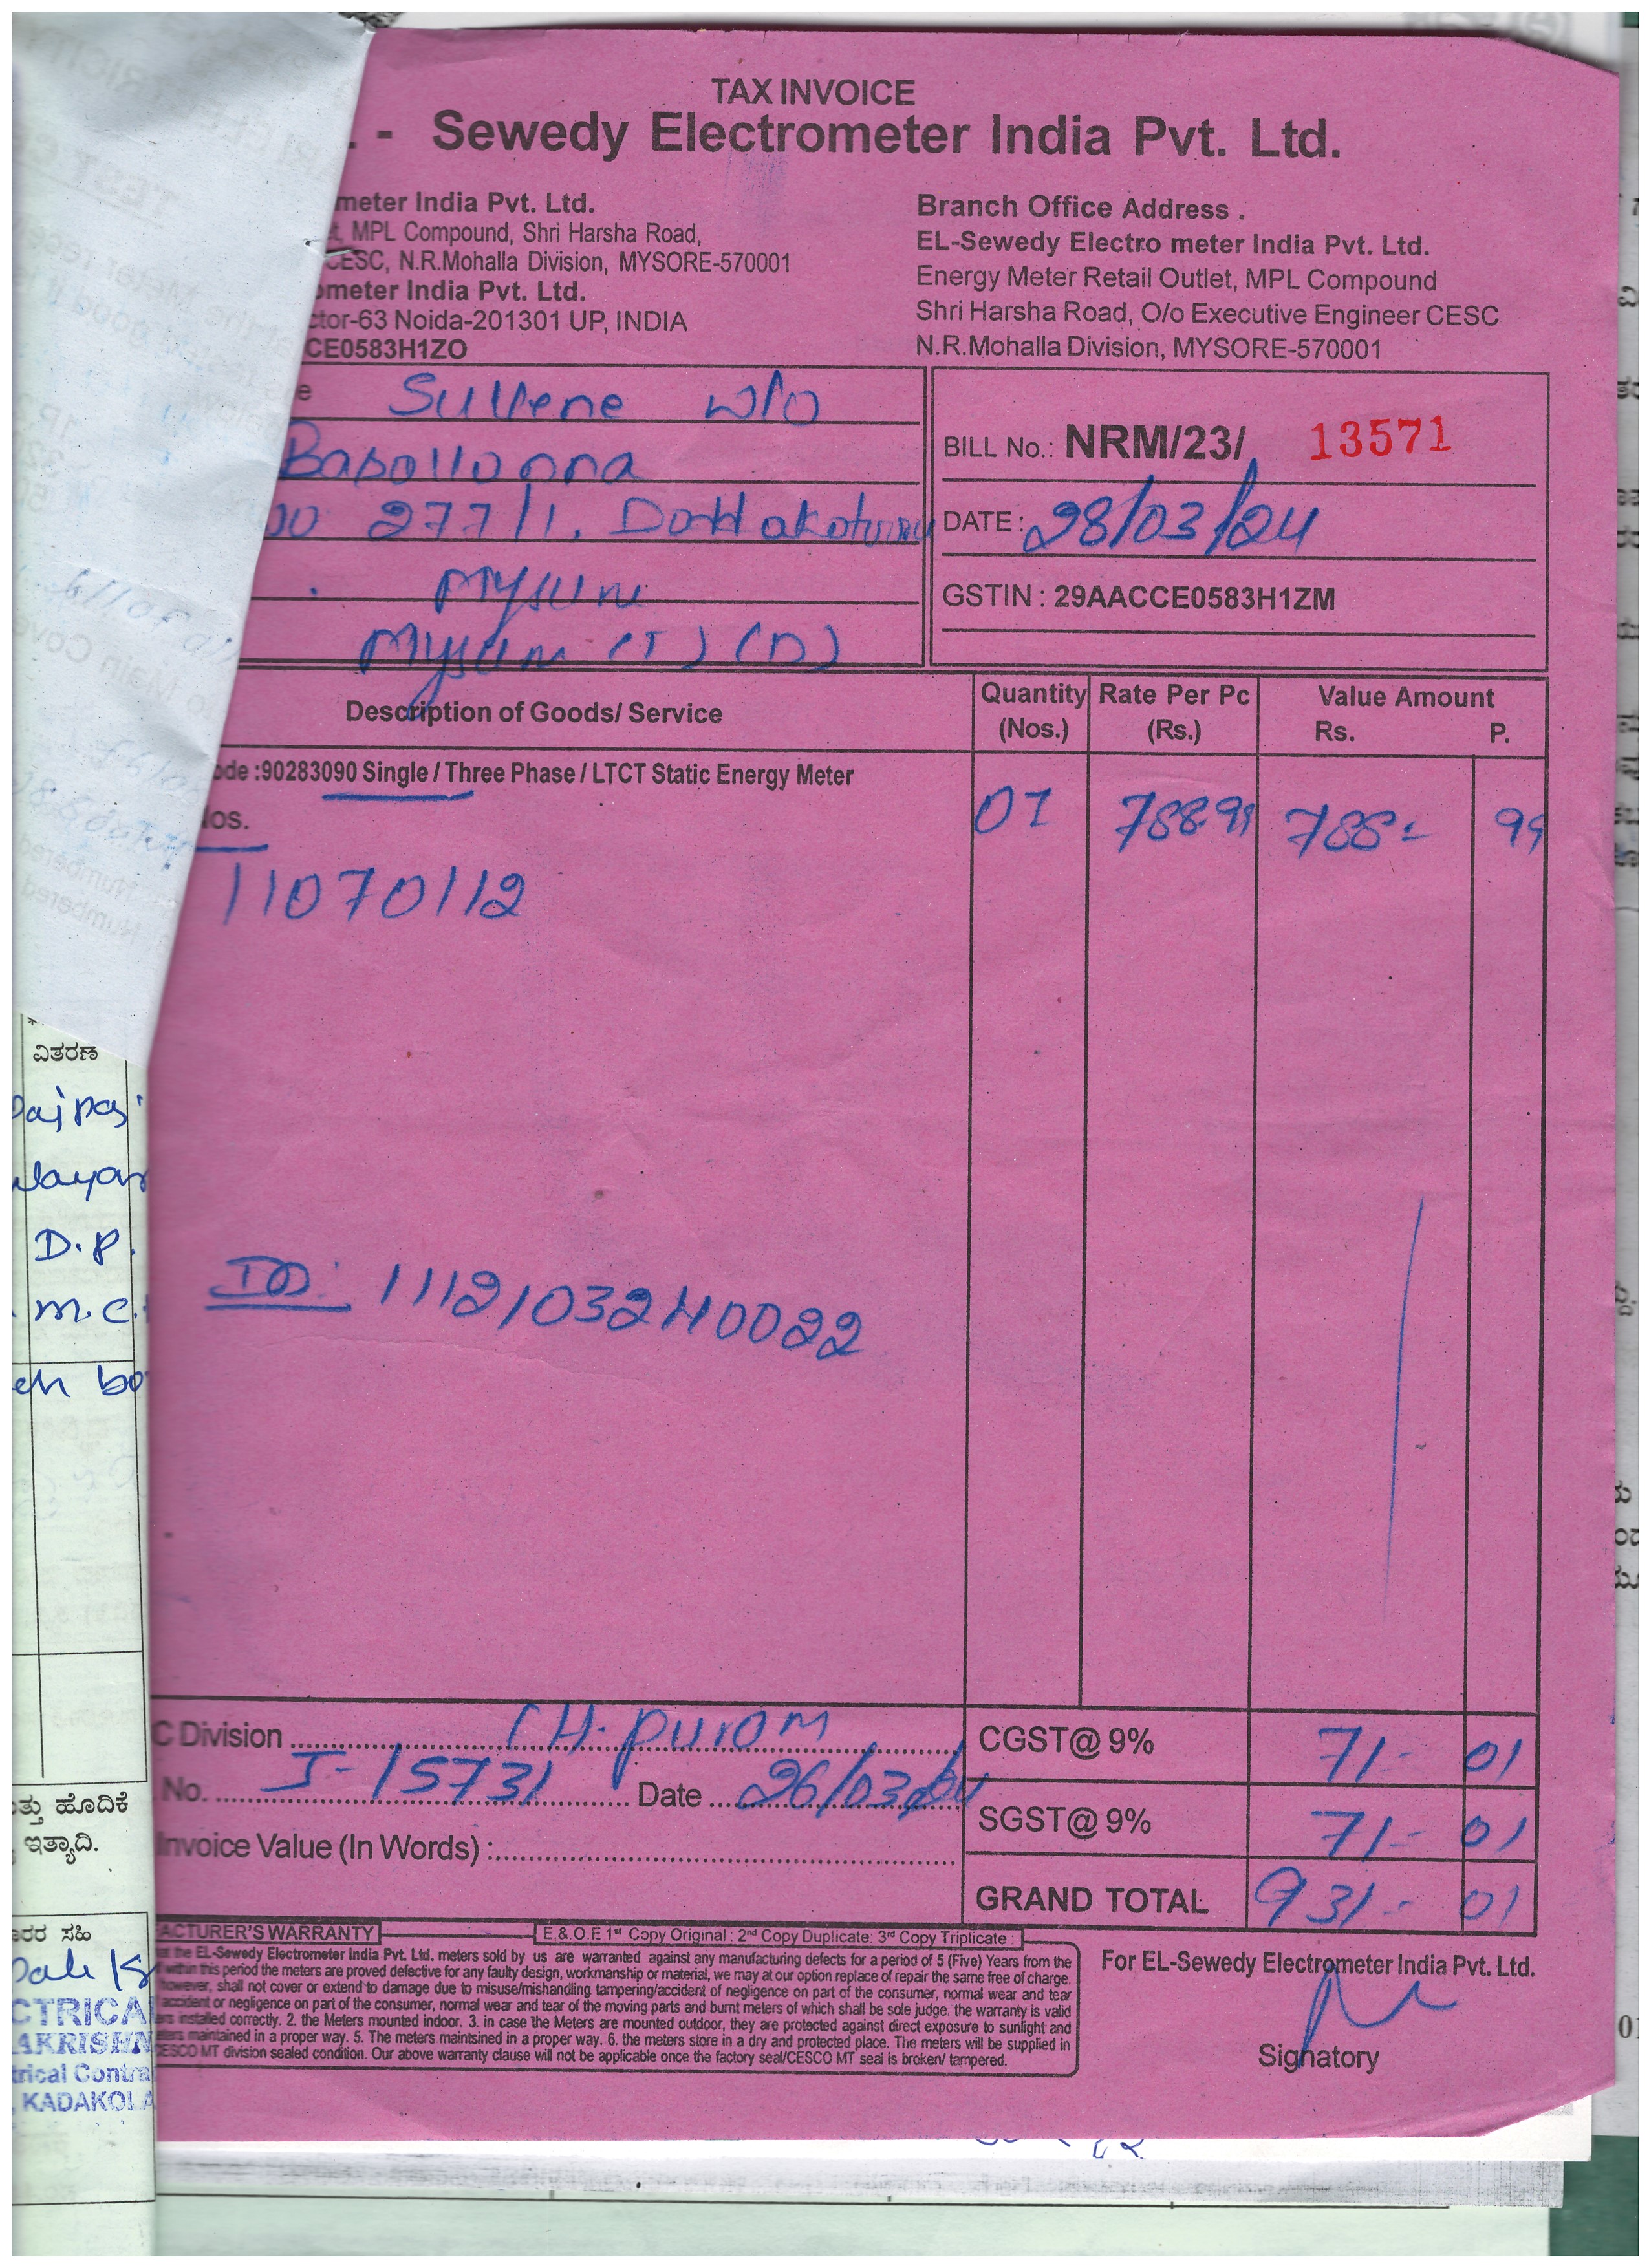 TAX INVOICE
. - Sewedy Electrometer India Pvt. Ltd.
meter India Pvt. Ltd.
MPL Compound, Shri Harsha Road,
CESC, N.R.Mohalla Division, MYSORE-570001
ometer India Pvt. Ltd.
ctor-63 Noida-201301 UP, INDIA
CE0583H1ZO
Branch Office Address .
EL-Sewedy Electro meter India Pvt. Ltd.
Energy Meter Retail Outlet, MPL Compound
Shri Harsha Road, O/o Executive Engineer CESC
N.R.Mohalla Division, MYSORE-570001
W/O
277/1,
Mysuru
Mysuru (T) (D)
BILL No.: NRM/23/ 13571
DATE : 28/03/24
GSTIN : 29AACCE0583H1ZM
Description of Goods/ Service
Quantity (Nos.)
Rate Per Pc (Rs.)
Value Amount
Rs. P.
ode :90283090 Single / Three Phase / LTCT Static Energy Meter
Nos.
01 788.99 788= 99
11070112
ID: 1112103240022
C Division
No. J-15731 Date 26/03/24
Invoice Value (In Words) :
CGST@ 9% 71- 01
SGST@ 9% 71- 01
GRAND TOTAL 931- 01
ACTURER'S WARRANTY
E.& O.E 1st Copy Original : 2nd Copy Duplicate: 3rd Copy Triplicate :
the EL-Sewedy Electrometer India Pvt. Ltd. meters sold by us are warranted against any manufacturing defects for a period of 5 (Five) Years from the
within this period the meters are proved defective for any faulty design, workmanship or material, we may at our option replace of repair the same free of charge.
however, shall not cover or extend to damage due to misuse/mishandling tampering/accident of negligence on part of the consumer, normal wear and tear
accident or negligence on part of the consumer, normal wear and tear of the moving parts and burnt meters of which shall be sole judge. the warranty is valid
ers installed correctly. 2. the Meters mounted indoor. 3. in case the Meters are mounted outdoor, they are protected against direct exposure to sunlight and
eters maintained in a proper way. 5. The meters maintsined in a proper way. 6. the meters store in a dry and protected place. The meters will be supplied in
CESCO MT division sealed condition. Our above warranty clause will not be applicable once the factory seal/CESCO MT seal is broken/ tampered.
For EL-Sewedy Electrometer India Pvt. Ltd.
Signatory
ವಿತರಣ
D.P.
m.c.
ತ್ತು ಹೊದಿಕೆ
ಇತ್ಯಾದಿ.
ರರ ಸಹಿ
CTRICA
AKRISHN
trical Contra
, KADAKOLA